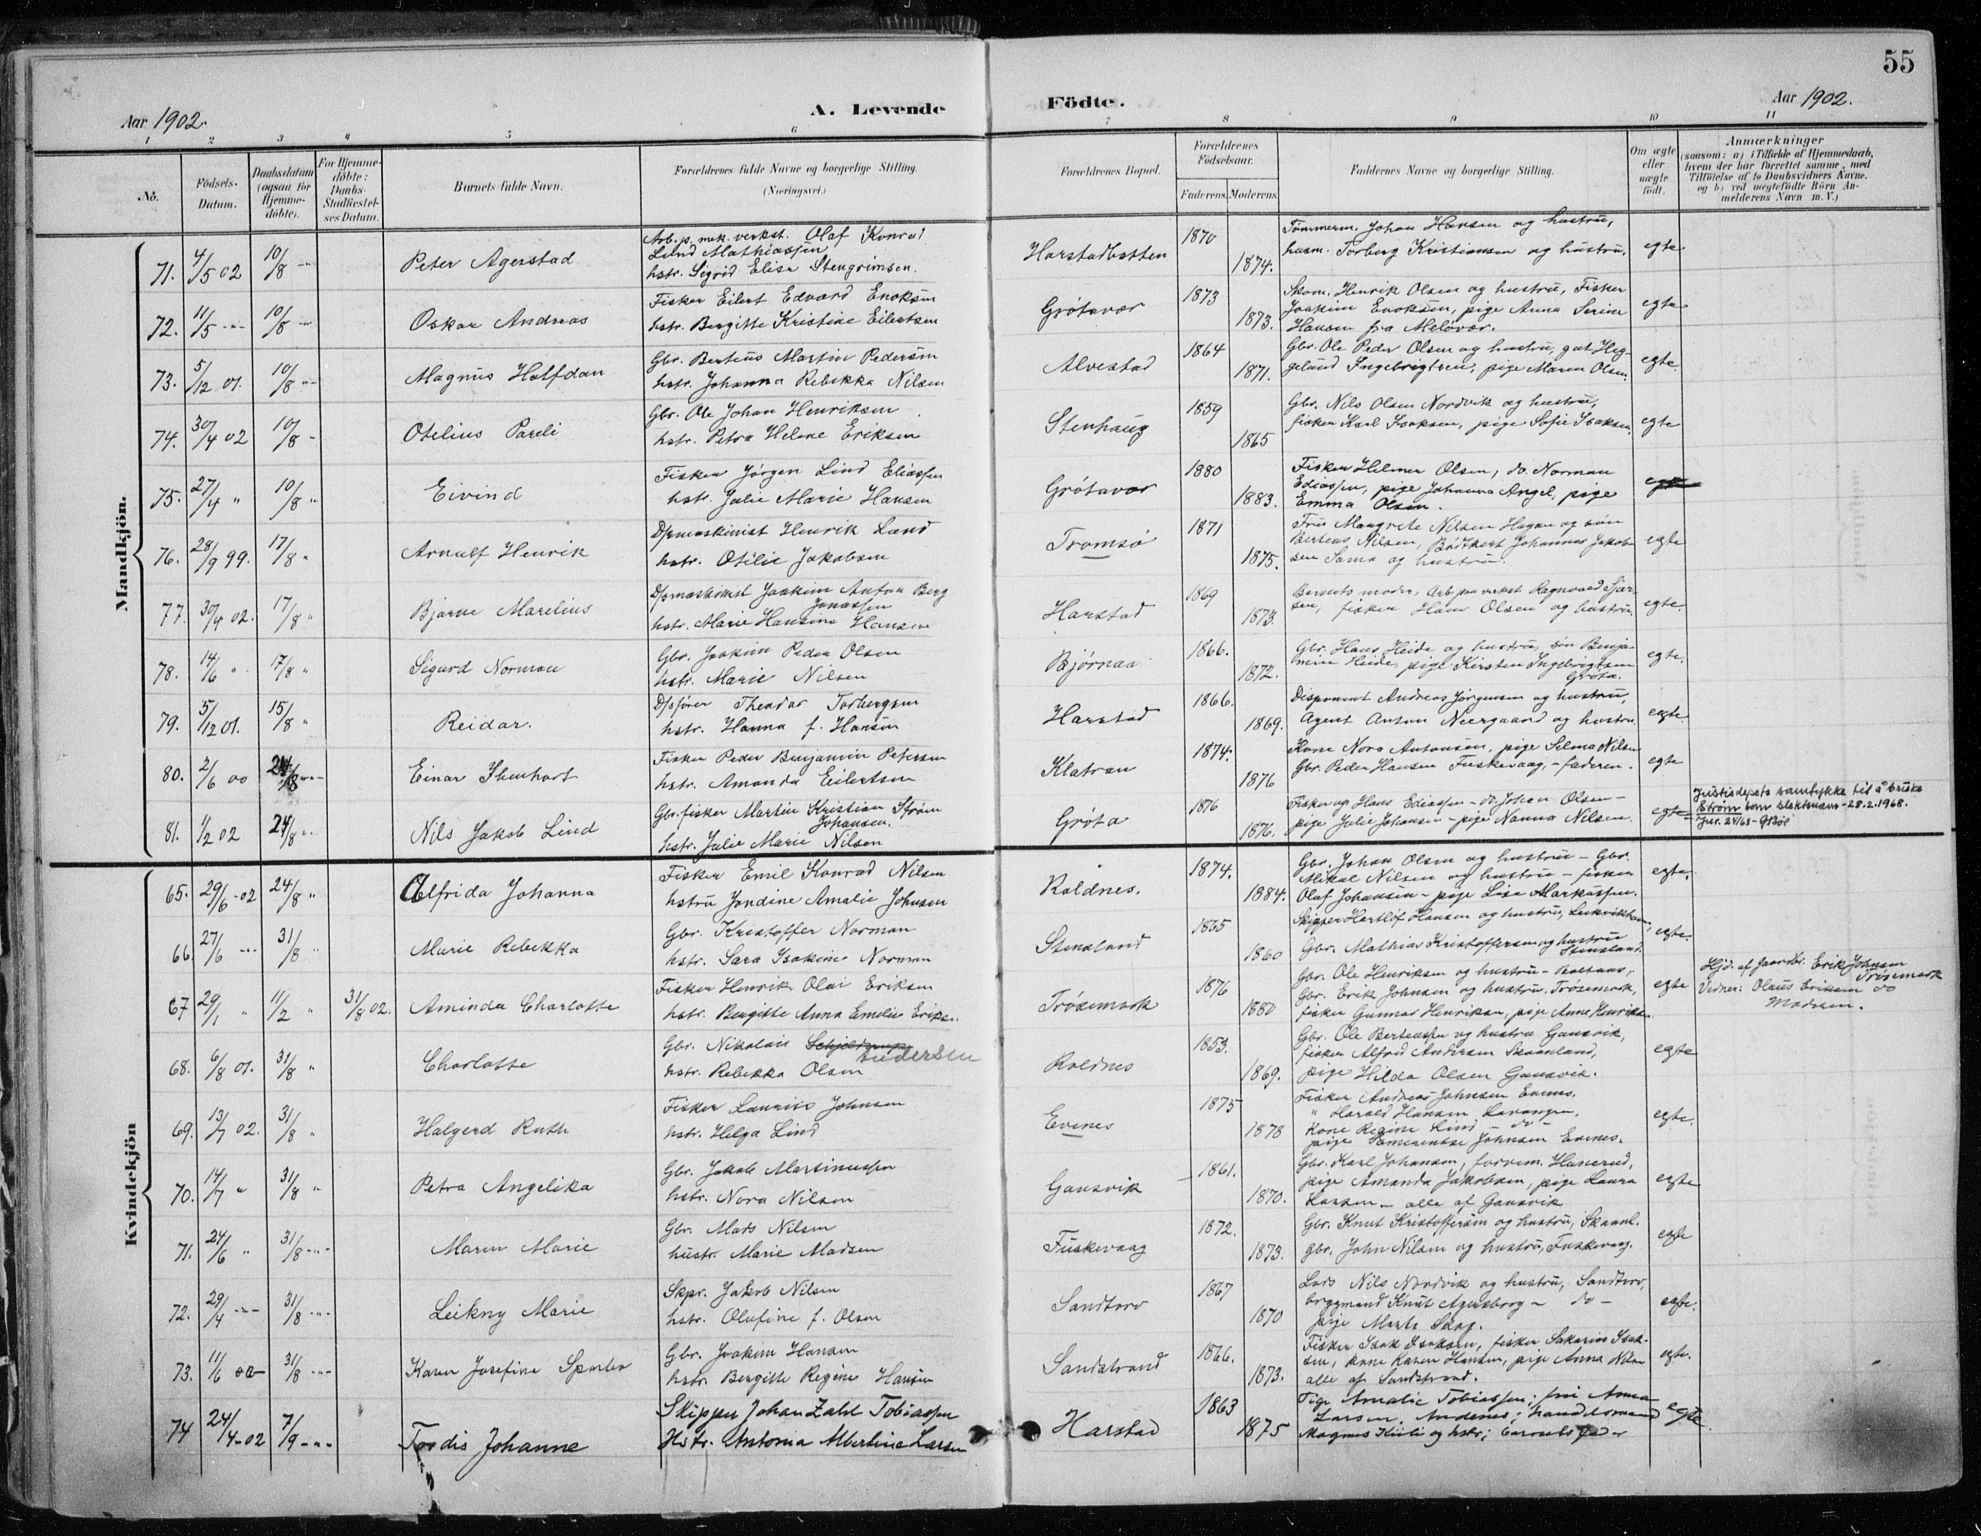 55
Aar 1902.
A. Levende
Födte.
Aar 1902.
1 2 3 4 5 6 7 8 9 10 11
No.
Födsels-Datum.
Daabsdatum (ogsaa for Hjemme-döbte).
For Hjemme-döbte: Daabs-Stadfæstel-ses Datum.
Barnets fulde Navn.
Forældrenes fulde Navne og borgerlige Stilling.
(Næringsvei.)
Forældrenes Bopæl.
Forældrenes Födselsaar.
Faderens. Moderens.
Faddernes Navne og borgerlige Stilling.
Om ægte eller uægte födt.
Anmærkninger
(saasom: a) i Tilfælde af Hjemmedaab, hvem der har forrettet samme, med Tilföielse af to Daabsvidners Navne, og b) ved uegtefödte Börn An-melderens Navn m. V.)
Mandkjön.
71. 4/5 02 10/8 -"- Peter Agerstad
Arb. p. mek. verkst. Olaf Konrad
Lind Mathiassen
hstr. Sigrid Elise Stengrimsen.
Harstadbotten 1870 1874.
Tømmerm. Johan Hansen og hustru,
husm. Torberg Kristiansen og hustru. egte
72. 11/5 -"- 10/8 -"- Oskar Andreas
Fisker Eilert Edvard Enoksen
hstr. Bergitte Kristine Eilertsen
Grøtavær 1873 1873.
Skom. Henrik Olsen og hustru, Fisker
Joakim Enoksen, pige Anna Serine
Hansen fra Meløvær. egte
73. 5/12 01. 10/8 -"- Magnus Halfdan
Gbr. Berteus Martin Pedersen
hstr. Johanna Rebekka Nilsen
Alvestad 1864 1871.
Gbr. Ole Peder Olsen og hustru, gat. Heg-
gelund Ingebrigtsen, pige Maren Olsen. egte.
74. 30/4 02 10/8 - Otelius Pareli
Gbr. Ole Johan Henriksen
hstr. Petra Helene Eriksen
Stenhaug 1859 1865
Gbr. Nils Olsen Nordvik og hustru,
fisker Karl Isaksen, pige Sofie Isaksen. egte
75. 27/4 " 10/8 " Eivind
Fisker Jørgen Lind Eliassen
hstr. Julie Marie Hansen
Grøtavær 1880 1883.
Fisker Helmer Olsen, do. Norman
Ediassen, pige Johanna Angel, pige
Emma Olsen. egte
76. 28/9 99. 17/8 " Arnulf Henrik
D/pmaskinist Henrik Land
hstr. Otilie Jakobsen
Tromsø 1871 1875.
Fru Mangrete Nilsen Hagan og søn
Berteus Nilsen, Johannes Jakob-
sen Sama og hustru. egte
77. 30/4 02. 17/8 " Bjarne Marelius
D/pmaskinist Joakim Anton Berg
Jonassen
hstr. Marie Hansine Hansen
Harstad 1869 1873.
Barnets moder, Arb. paa verkst. Ragnvald
fisker Hans Olsen og hustru. egte.
78. 14/6 " 17/8 " Sigurd Norman
Gbr. Joakim Peder Olsen
hstr. Marie Nilsen
Bjørnaa 1866. 1872.
Gbr. Hans Heide og hustru, søn Benja-
min Heide, pige Kirsten Ingebrigtsen
Grøta. egte.
79. 5/12 01. 15/8 " Reidar.
D/sfører Theodor Torbergsen
hstr. Hanna f. Hansen
Harstad 1866. 1869.
Disponent Andreas Jørgensen og hustru,
Agent Anton Neergaard og hustru. egte.
80. 2/6 00 24/8 -"- Einar
Fisker Peder Benjamin Petersen
hstr. Amanda Eilertsen
Klatran 1874. 1876
Kone Nora Antonsen, pige Selma Nilsen
Gbr. Peder Hansen Fuskevaag, - faderen. egte
81. 1/2 02 24/8 " Nils Jakob Lind
Gbr. fisker Martin Kristian Strøm
Johansen.
hstr. Julie Marie Nilsen
Grøta 1876 1876.
Hans Ediassen - do. Johan Olsen -
pige Julie Johansen - pige Nanna Nilsen. egte
Justisdepets samtykke til å bruke
Strøm som slektsnavn - 28.2.1968.
Jnr. 24/68 - GBöe
Kvindekjön
65. 29/6 -02 24/8 " Alfrida Johanna
Fisker Emil Konrad Nilsen
hstru Jondine Amalie Johnsen
Roldnes. 1874. 1884.
Gbr. Johan Olsen og hustru - Gbr.
Mikal Nilsen og hustru - fisker
Olaf Johansen - pige Lise Markussen. egte.
66. 27/6 -"- 31/8 " Marie Rebekka
Gbr. Kristoffer Norman
hstr. Sara Isakine Norman
Stensland 1865 1860
Skipper Hartlöf Hansen og hustru,
Gbr. Mathias Kristoffersen og hustru
Stensland. egte.
67 29/1 " 11/2 " 31/8 02. Aminda Charlotte
Fisker Henrik Olai Eriksen
hstr. Bergitte Anna Emelie Eriks.
Trøsemark 1876 1880
Gbr. Ole Henriksen og hustru -
Gbr. Erik Johnsen og hustru. Trøsemark,
fisker Gunnar Henriksen, pige Anne Henriksen. egte
Hjd. af Jordbr. Erik Johnsen
Trøsemark
Vidner: Olaus Eriksen do
Madsen.
68. 6/8 01. 31/8 " Charlotte
Gbr. Nikolai Schjelderup Andersen
hstr. Rebekka Olsen
Roldnes 1853. 1869.
Gbr. Ole Berteussen og hustru Gausvik,
fisker Alfred Andersen Skaanland,
pige Hilda Olsen Gausvik. egte
69. 13/7 02. 31/8 " Halgerd Ruth
Fisker Laurits Johnsen
hstr. Helga Lind
Evenes 1875 1878
Fisker Andreas Johnsen Evenes.
" Harald Hansen Lavangen.
Kone Regine Lind - do -
pige Johnsen Evenes. egte.
70. 14/7 " 31/8 " Petra Angelika
Gbr. Jakob Martinussen
hstr. Nora Nilsen
Gausvik 1861. 1870.
Gbr. Karl Johansen, forvem. Hanerud,
pige Amanda Jakobsen, pige Laura
Larsen - alle af Gausvik egte
71. 24/6 " 31/8 -"- Maren Marie
Gbr. Mads Nilsen
hustr. Marie Madsen
Fuskevaag 1872. 1873.
Gbr. Knut Kristoffersen og hustru, Skaanl.
gbr. John Nilsen og hustru, Fuskevaag. egte
72. 29/4 -"- 31/8 -"- Leikny Marie
Skpr. Jakob Nilsen
hstr. Olufine f. Olsen
Sandtorv 1867 1870
Lods Nils Nordvik og hustru, Sandtorv,
bryggmand Knut Agersborg - do -
pige Marta Skog. egte.
73. 11/6 00- 31/8 -"- Karen Josefine Sparbo
Gbr. Joakim Hansen
hstr. Bergitte Regine Hansen
Sandstrand 1866. 1873.
Fisker Isak Isaksen, fisker Sakarias Isak-
sen, kone Karen Hansen, pige Anna Nilsen
alle af Sandstrand. egte.
74 24/4-02 7/9 -"- Tordis Johanne
Skipper Johan Zahl Tobiassen
Hstr. Antonia Albertine Larsen
Harstad 1863 1875
Pige Amalie Tobiassen; frøi Anna
Larsen, Andenes; handelsmand
Magnus Kiil og hstr; barnets fader egte.